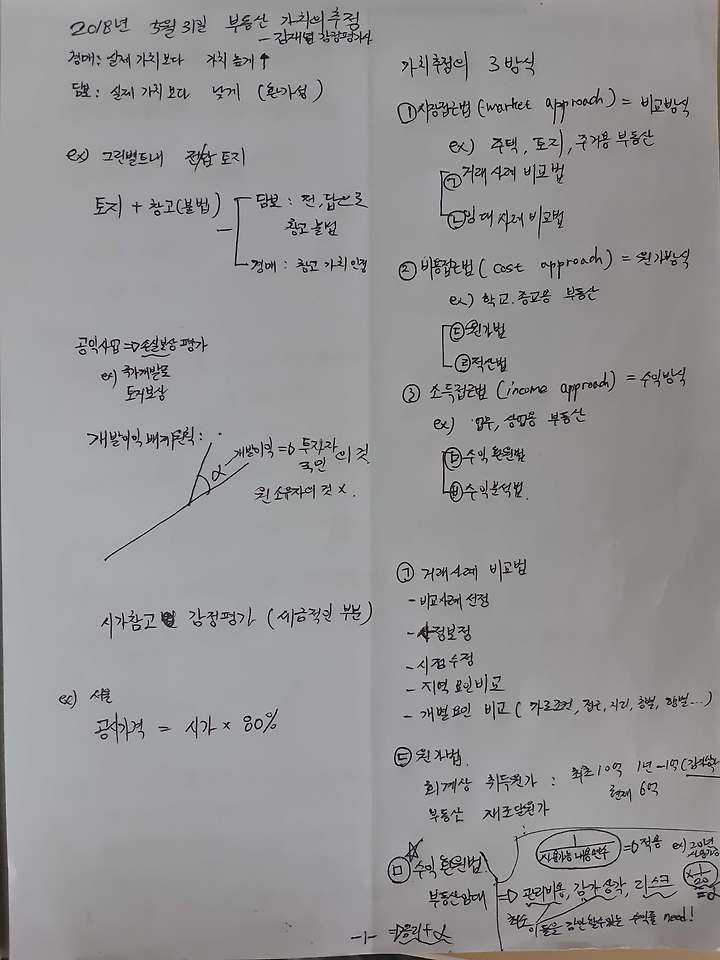 2018년 5월 31일 부동산 가치의 추정
- 김재열 감정평가사
경매: 실제 가치보다 가치 높게 ↑
담보: 실제 가치보다 낮게 (환가성)
ex) 그린벨트내 토지
토지 + 창고(불법)
담보: 전, 답으로
창고 불법
경매: 창고 가치 인정
공익사업 => 손실보상 평가
ex) 국가개발로
토지보상
개발이익 배제원칙:
α
개발이익 => 투자자
국민 의 것
원 소유자의 것 x.
시가참고 감정평가 (세금적인 부분)
ex) 서울
공시가격 = 시가 × 80%
가치추정의 3방식
① 시장접근법 (market approach) = 비교방식
ex) 주택, 토지, 주거용 부동산
㉠ 거래사례 비교법
㉡ 임대사례 비교법
② 비용접근법 (cost approach) = 원가방식
ex) 학교. 종교용 부동산
㉢ 원가법
㉣ 적산법
③ 소득접근법 (income approach) = 수익방식
ex) 업무, 상업용 부동산
㉤ 수익환원법
㉥ 수익분석법.
㉠ 거래사례 비교법
- 비교사례 선정
- 사정보정
- 시점수정
- 지역요인비교
- 개별요인 비교 (가로조건, 접근, 거리, 층별, 향별...)
㉢ 원가법.
회계상 취득원가 : 최초 10억 1년 -1억
현재 6억
부동산 재조달원가
1
사용가능 내용연수
=> 적용 ex) 20년
사용가능
× 1
20
㉤ 수익환원법.
부동산임대 => 관리비용, 감가상각, 리스크
최소 이들을 감안할수있는 수익률 need!
=> 금리 + α
-1-